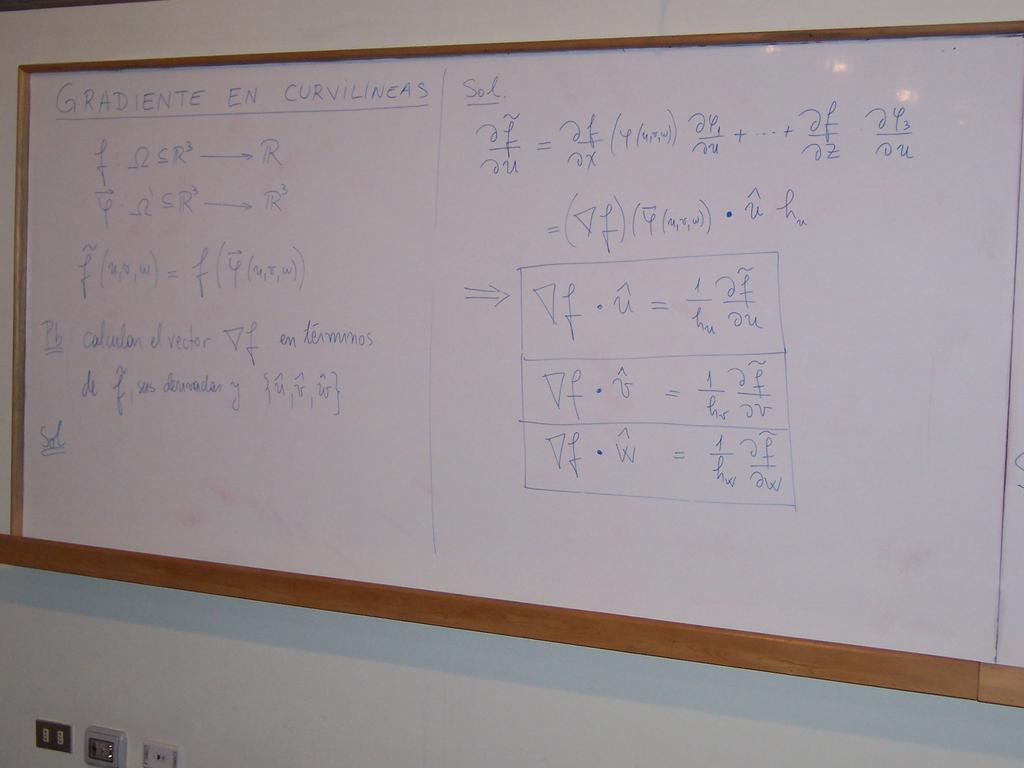 GRADIENTE EN CURVILINEAS
f : Ω ⊆ ℝ³ ⟶ ℝ
φ⃗ : Ω' ⊆ ℝ³ ⟶ ℝ³
f̃ (u,v,w) = f (φ⃗ (u,v,w))
Pb calcular el vector ∇f en términos
de f̃, sus derivadas y {û, v̂, ŵ}
Sol
Sol.
∂f̃/∂u = ∂f/∂x (φ(u,v,w)) ∂φ₁/∂u + ... + ∂f/∂z · ∂φ₃/∂u
= (∇f)(φ⃗(u,v,w)) • û hᵤ
⟹ ∇f • û = 1/hᵤ ∂f̃/∂u
∇f • v̂ = 1/hᵥ ∂f̃/∂v
∇f • ŵ = 1/h_w ∂f̃/∂w